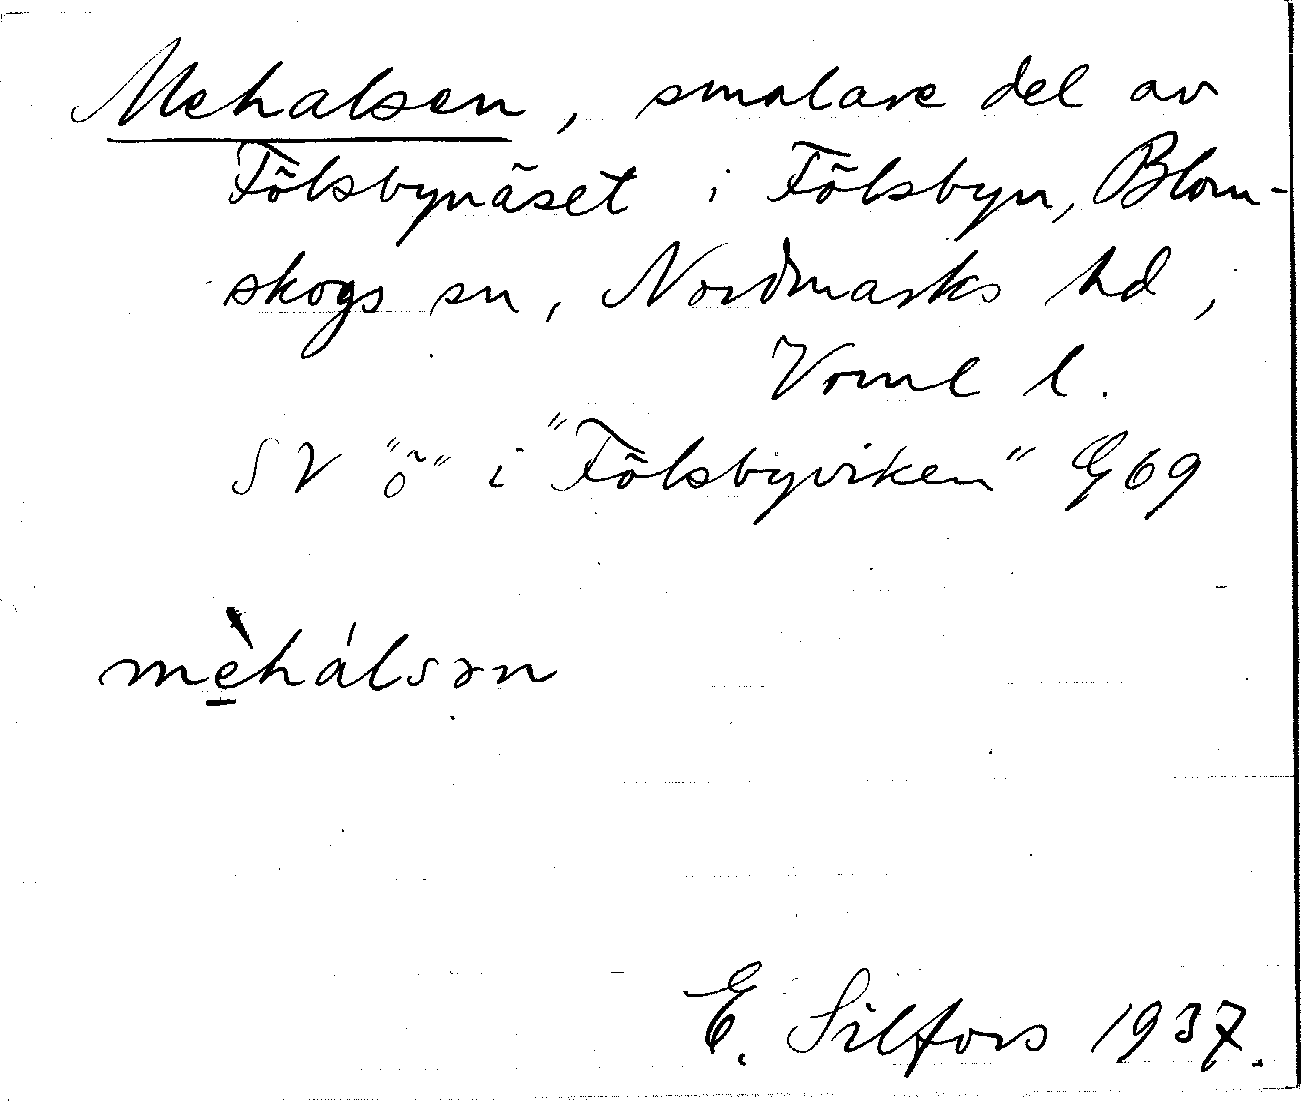 Mehalsen, smalare del av
Fölsbynäset i Fölsbyn, Blom-
skogs sn, Nordmarks hd,
Värml l.
SV "ö" i "Fölsbyviken" G69
mèhálsən
E. Silfors 1937.